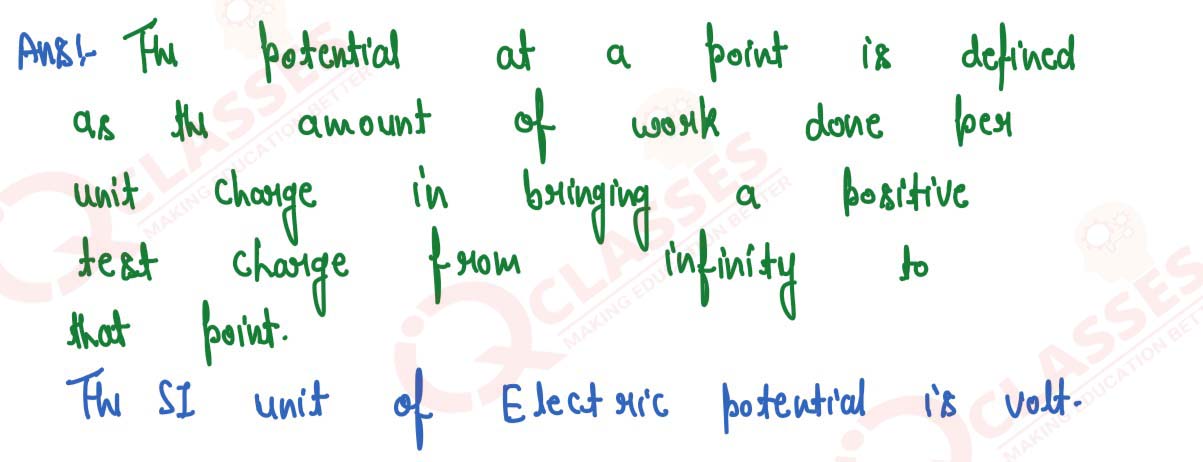 Ans:- The potential at a point is defined
as the amount of work done per
unit charge in bringing a positive
test charge from infinity to
that point.
The SI unit of Electric potential is volt.
CLASSES
MAKING EDUCATION BETTER
CLASSES
MAKING EDUCATION BETTER
CLASSES
MAKING EDUCATION BETTER